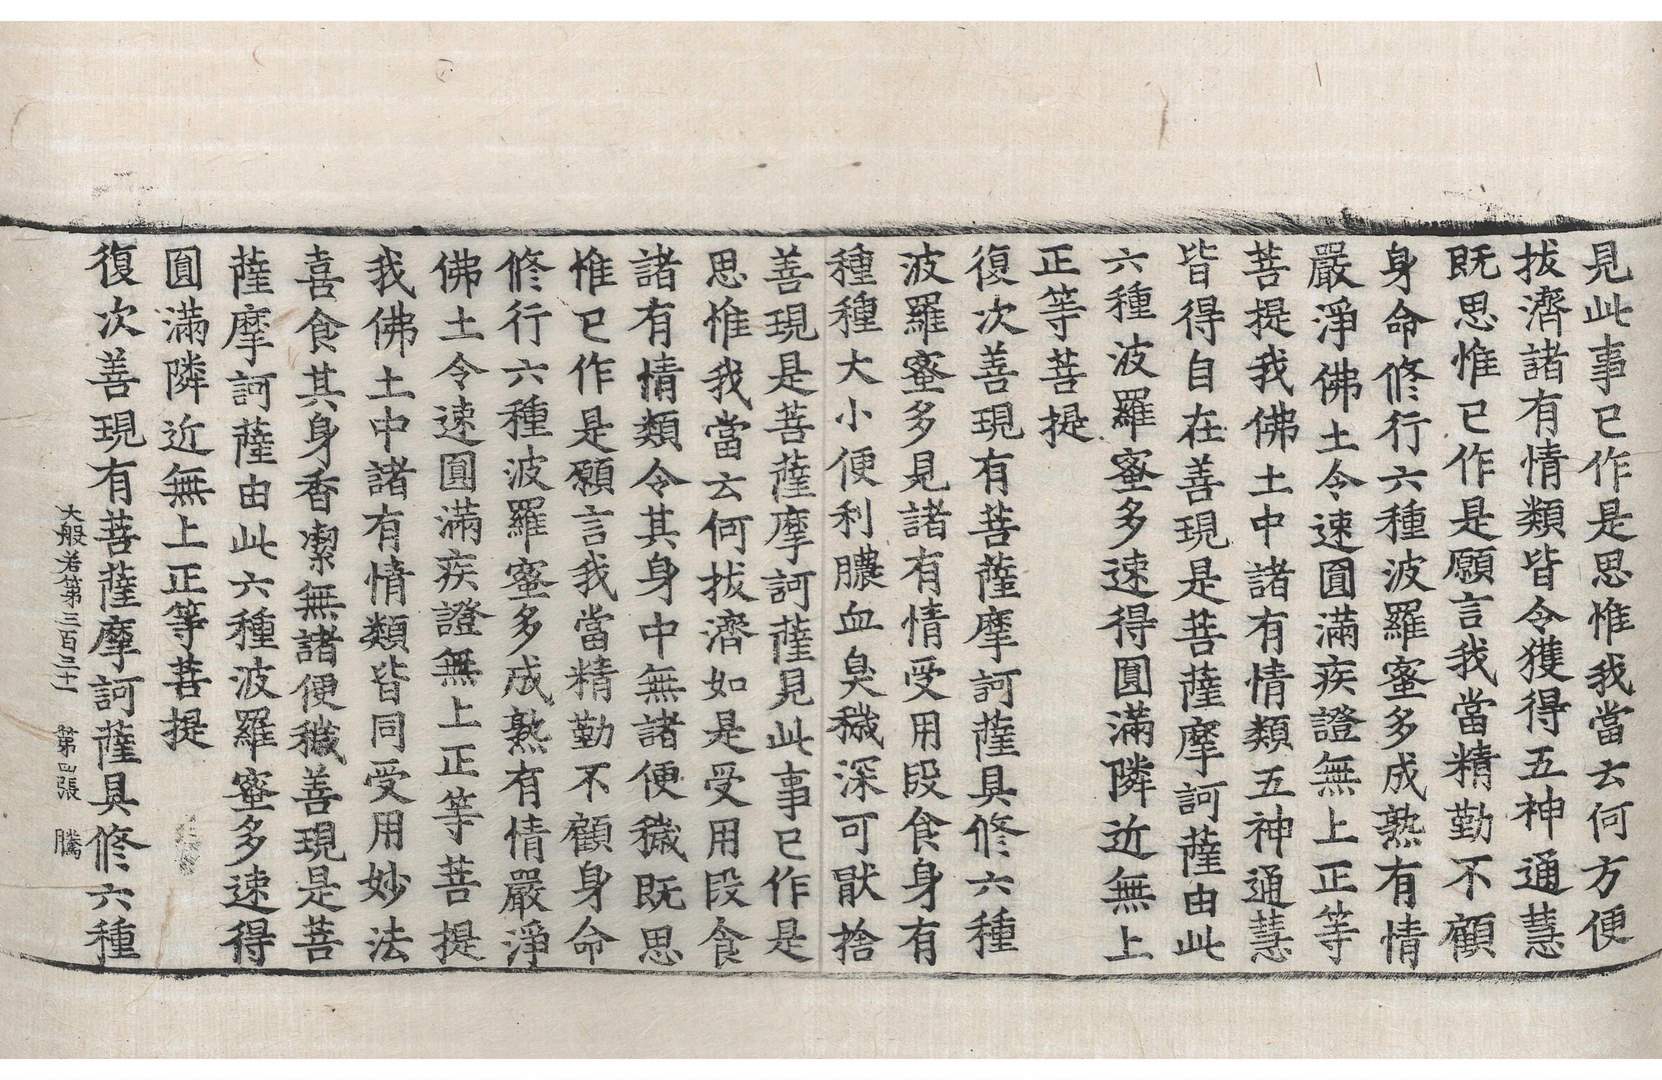 見此事已作是思惟我當云何方便
拔濟諸有情類皆令獲得五神通慧
既思惟已作是願言我當精勤不顧
身命修行六種波羅蜜多成熟有情
嚴淨佛土令速圓滿疾證無上正等
菩提我佛土中諸有情類五神通慧
皆得自在善現是菩薩摩訶薩由此
六種波羅蜜多速得圓滿隣近無上
正等菩提
復次善現有菩薩摩訶薩具修六種
波羅蜜多見諸有情受用段食身有
種種大小便利膿血臭穢深可猒捨
善現是菩薩摩訶薩見此事已作是
思惟我當云何拔濟如是受用段食
諸有情類令其身中無諸便穢既思
惟已作是願言我當精勤不顧身命
修行六種波羅蜜多成熟有情嚴淨
佛土令速圓滿疾證無上正等菩提
我佛土中諸有情類皆同受用妙法
喜食其身香潔無諸便穢善現是菩
薩摩訶薩由此六種波羅蜜多速得
圓滿隣近無上正等菩提
復次善現有菩薩摩訶薩具修六種
大般若第三百三十一 第四張 騰